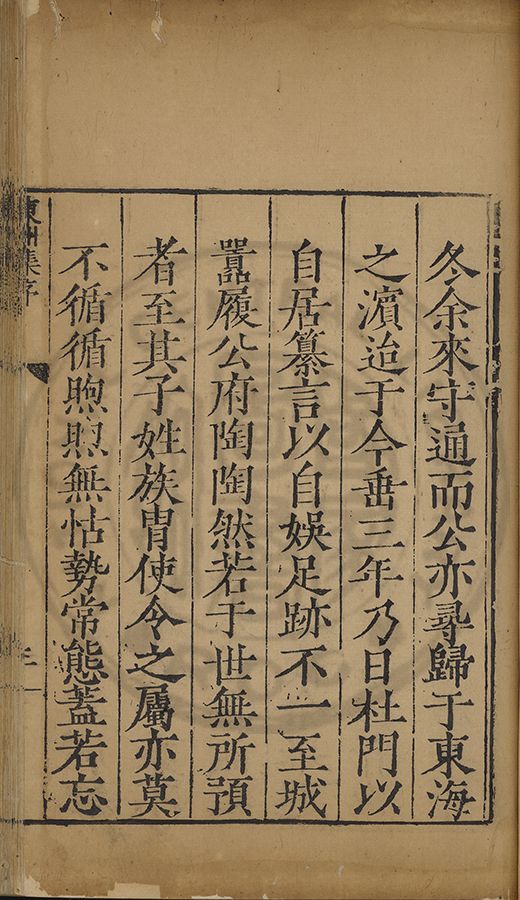 冬余來守通而公亦尋歸于東海
之濵迨于今垂三年乃日杜門以
自居纂言以自娛足跡不一至城
嚣履公府陶陶然若于世無所預
者至其子姓族胄使令之屬亦莫
不循循煦煦無怙勢常態蓋若忘
東洲集序
三